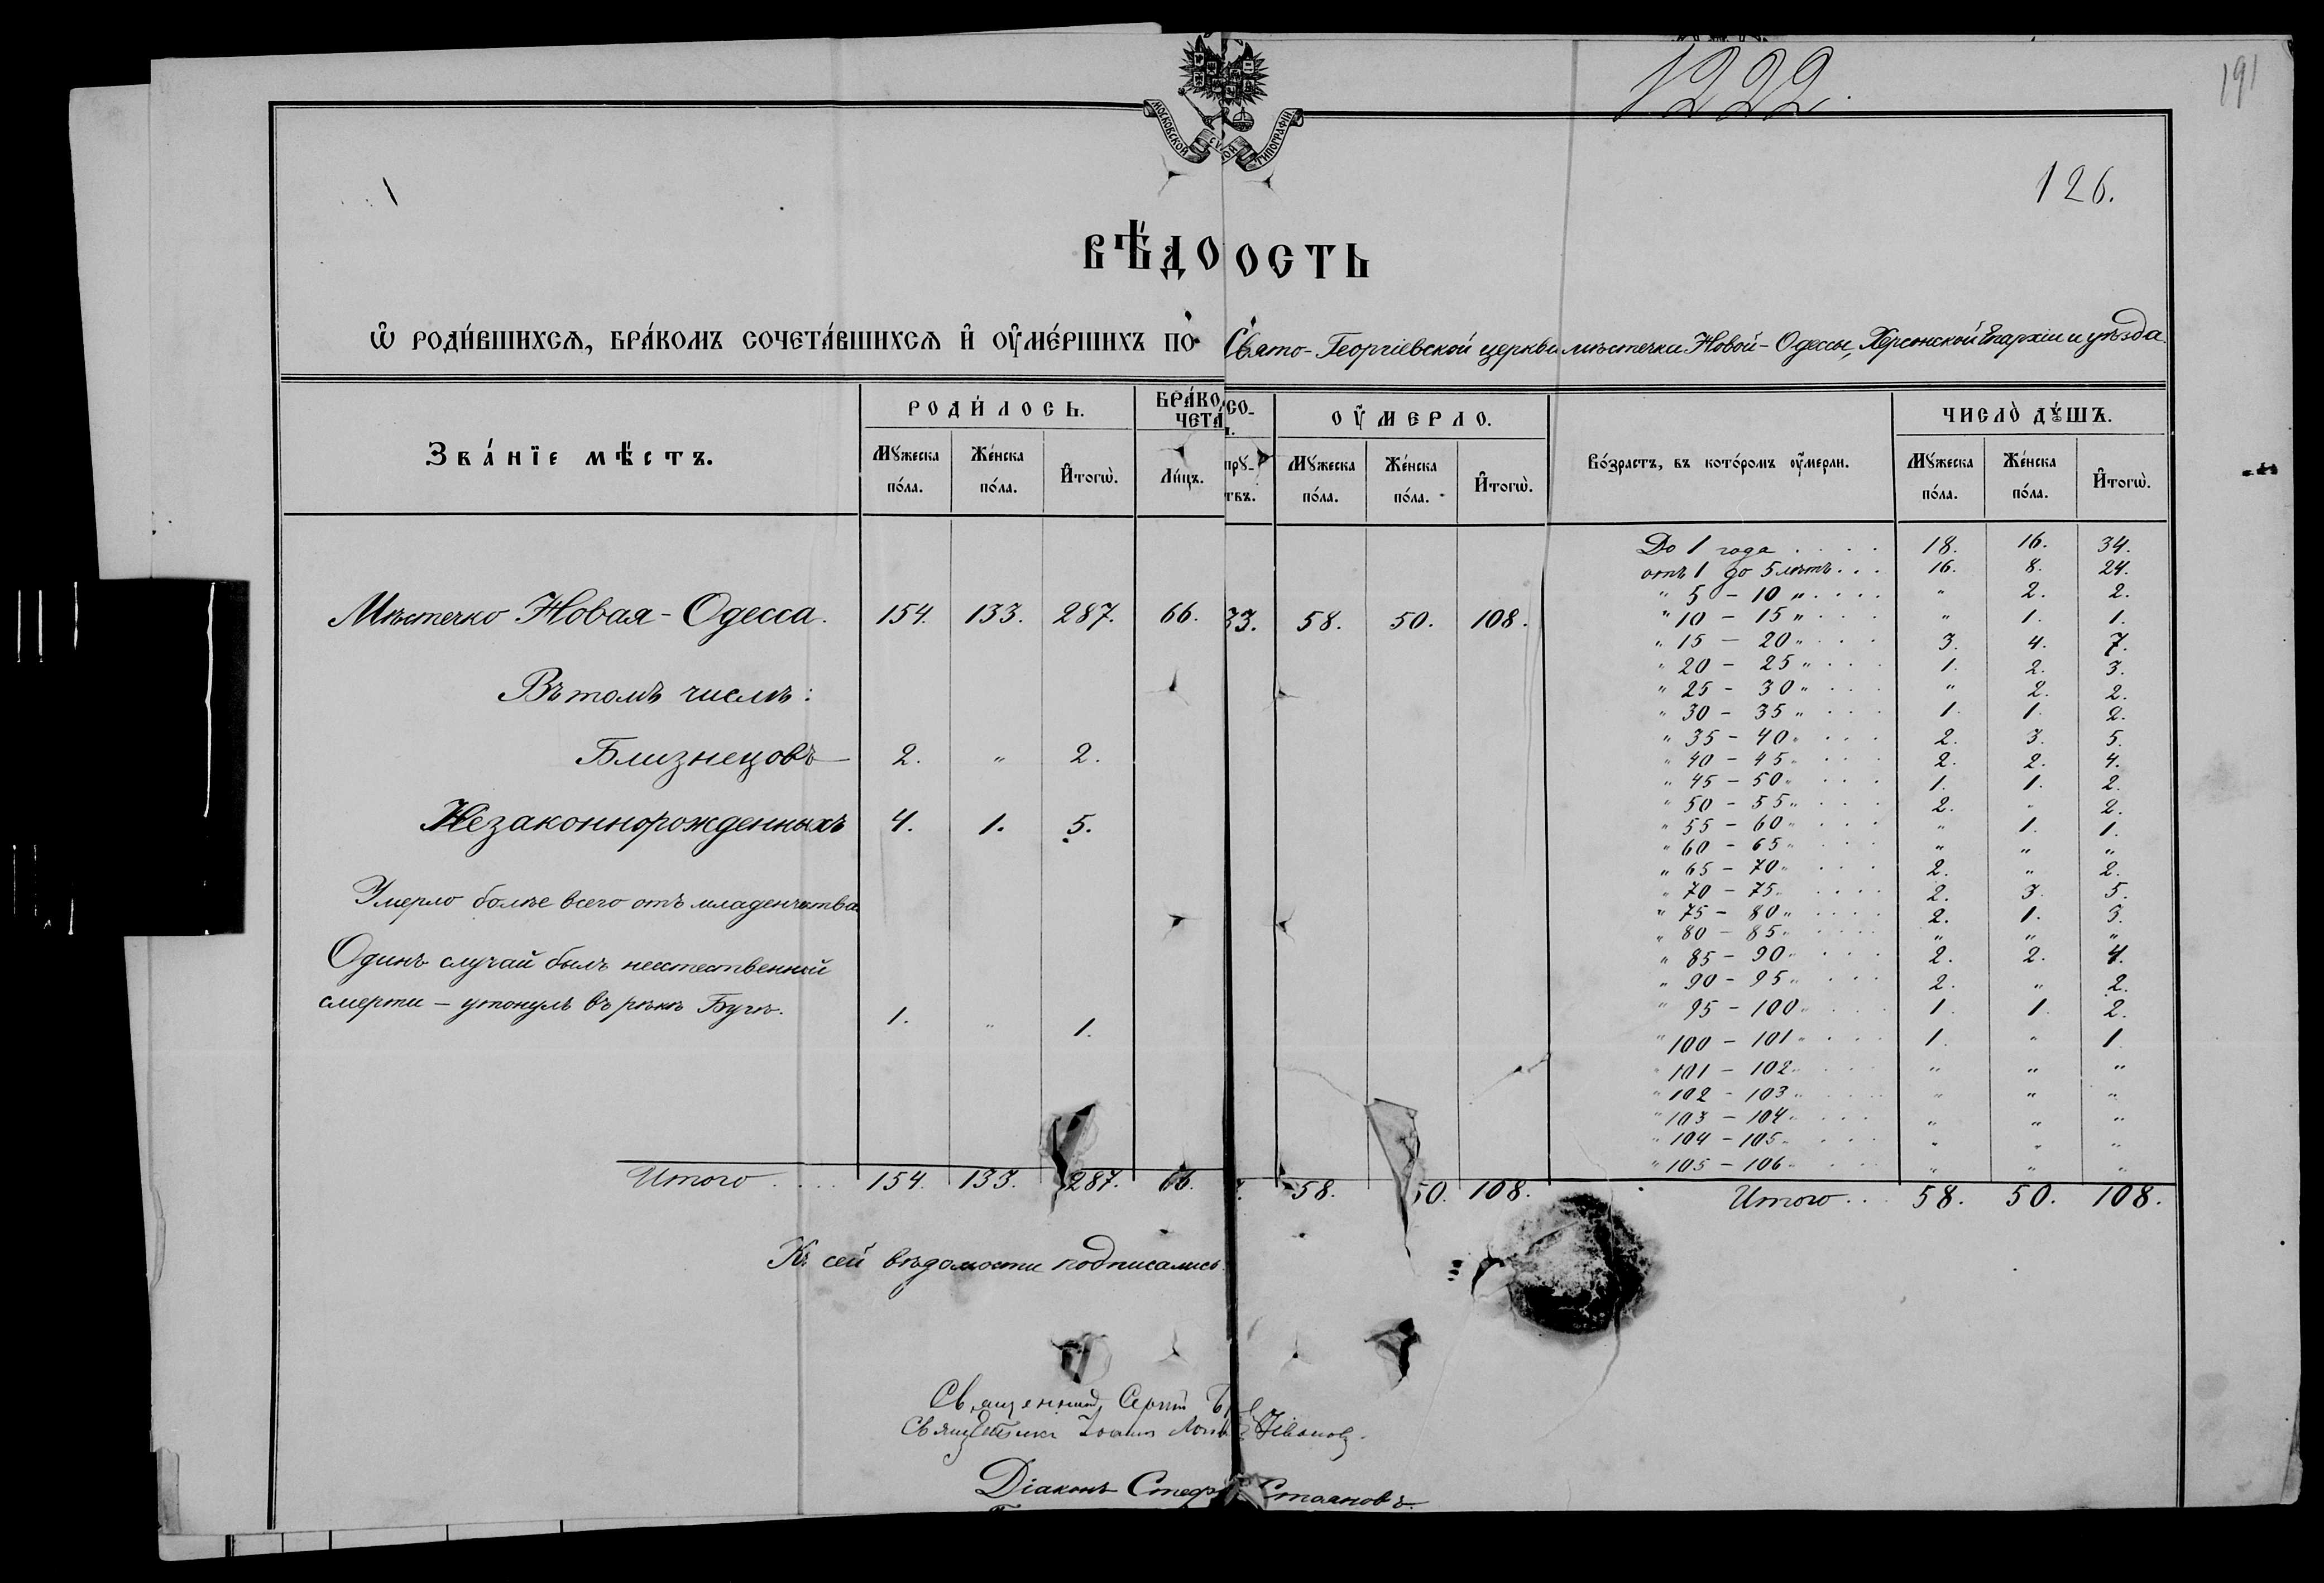 1222.
191
МОСКОВСКОЙ СѴНОД ТИПОГРАФІИ
126.
ВѢДО ОСТЬ
Ѽ РОДИ́ВШИХСѦ, БРА́КОМЪ СОЧЕТА́ВШИХСѦ И҆ ОУ҆МЕ́РШИХЪ ПО Свято-Георгіевской церкви мѣстечка Новой-Одессы, Херсонской Епархіи и уѣзда.
Зва́нїе мѣ́стъ. РОДИ́ЛОСЬ. БРА́КО СО- ЧЕТА́ ОУ҆МЕРЛО. Во́зрастъ, въ кото́ромъ оу҆мерли. ЧИСЛО̀ ДꙊ́ШЪ.
Мꙋжеска по́ла. Же́нска по́ла. И҆тогѡ̀. Ли́цъ. прꙋ- твъ. Мꙋжеска по́ла. Же́нска по́ла. И҆тогѡ̀. Мꙋжеска по́ла. Же́нска по́ла. И҆тогѡ̀.
До 1 года . . . . 18. 16. 34.
отъ 1 до 5 лѣтъ . . . 16. 8. 24.
" 5 – 10 " . . . . " 2. 2.
Мѣстечко Новая-Одесса. 154. 133. 287. 66. 33. 58. 50. 108. " 10 – 15 " . . . " 1. 1.
" 15 – 20 " . . . 3. 4. 7.
" 20 – 25 " . . . 1. 2. 3.
Въ томъ числѣ: " 25 – 30 " . . . " 2. 2.
" 30 – 35 " . . . 1. 1. 2.
" 35 – 40 " . . . 2. 3. 5.
Близнецовъ – 2. " 2. " 40 – 45 " . . . 2. 2. 4.
" 45 – 50 " . . . 1. 1. 2.
" 50 – 55 " . . . 2. " 2.
Незаконнорожденныхъ 4. 1. 5. " 55 – 60 " . . . " 1. 1.
" 60 – 65 " . . . " " "
" 65 – 70 " . . . 2. " 2.
Умерло болѣе всего отъ младенчества " 70 – 75 " . . . . 2. 3. 5.
" 75 – 80 " . . . . 2. 1. 3.
" 80 – 85 " . . . . " " "
Одинъ случай былъ неестественной " 85 – 90 " . . . 2. 2. 4.
" 90 – 95 " . . . 2. " 2.
смерти – утонулъ въ рѣкѣ Бугѣ. 1. " 1. " 95 – 100 " . . . 1. 1. 2.
" 100 – 101 " . . . . 1. " 1.
" 101 – 102 " . . . " " "
" 102 – 103 " . . . . " " "
" 103 – 104 " . . . " " "
" 104 – 105 " . . . " " "
" 105 – 106 " . . . " " "
Итого . . . . 154. 133. 287. 66. 58. 50. 108. Итого . . . 58. 50. 108.
Къ сей вѣдомости подписались:
Священникъ Сергій
Священникъ Іоаннъ Ивановъ.
Діаконъ Стеф Стояновъ.